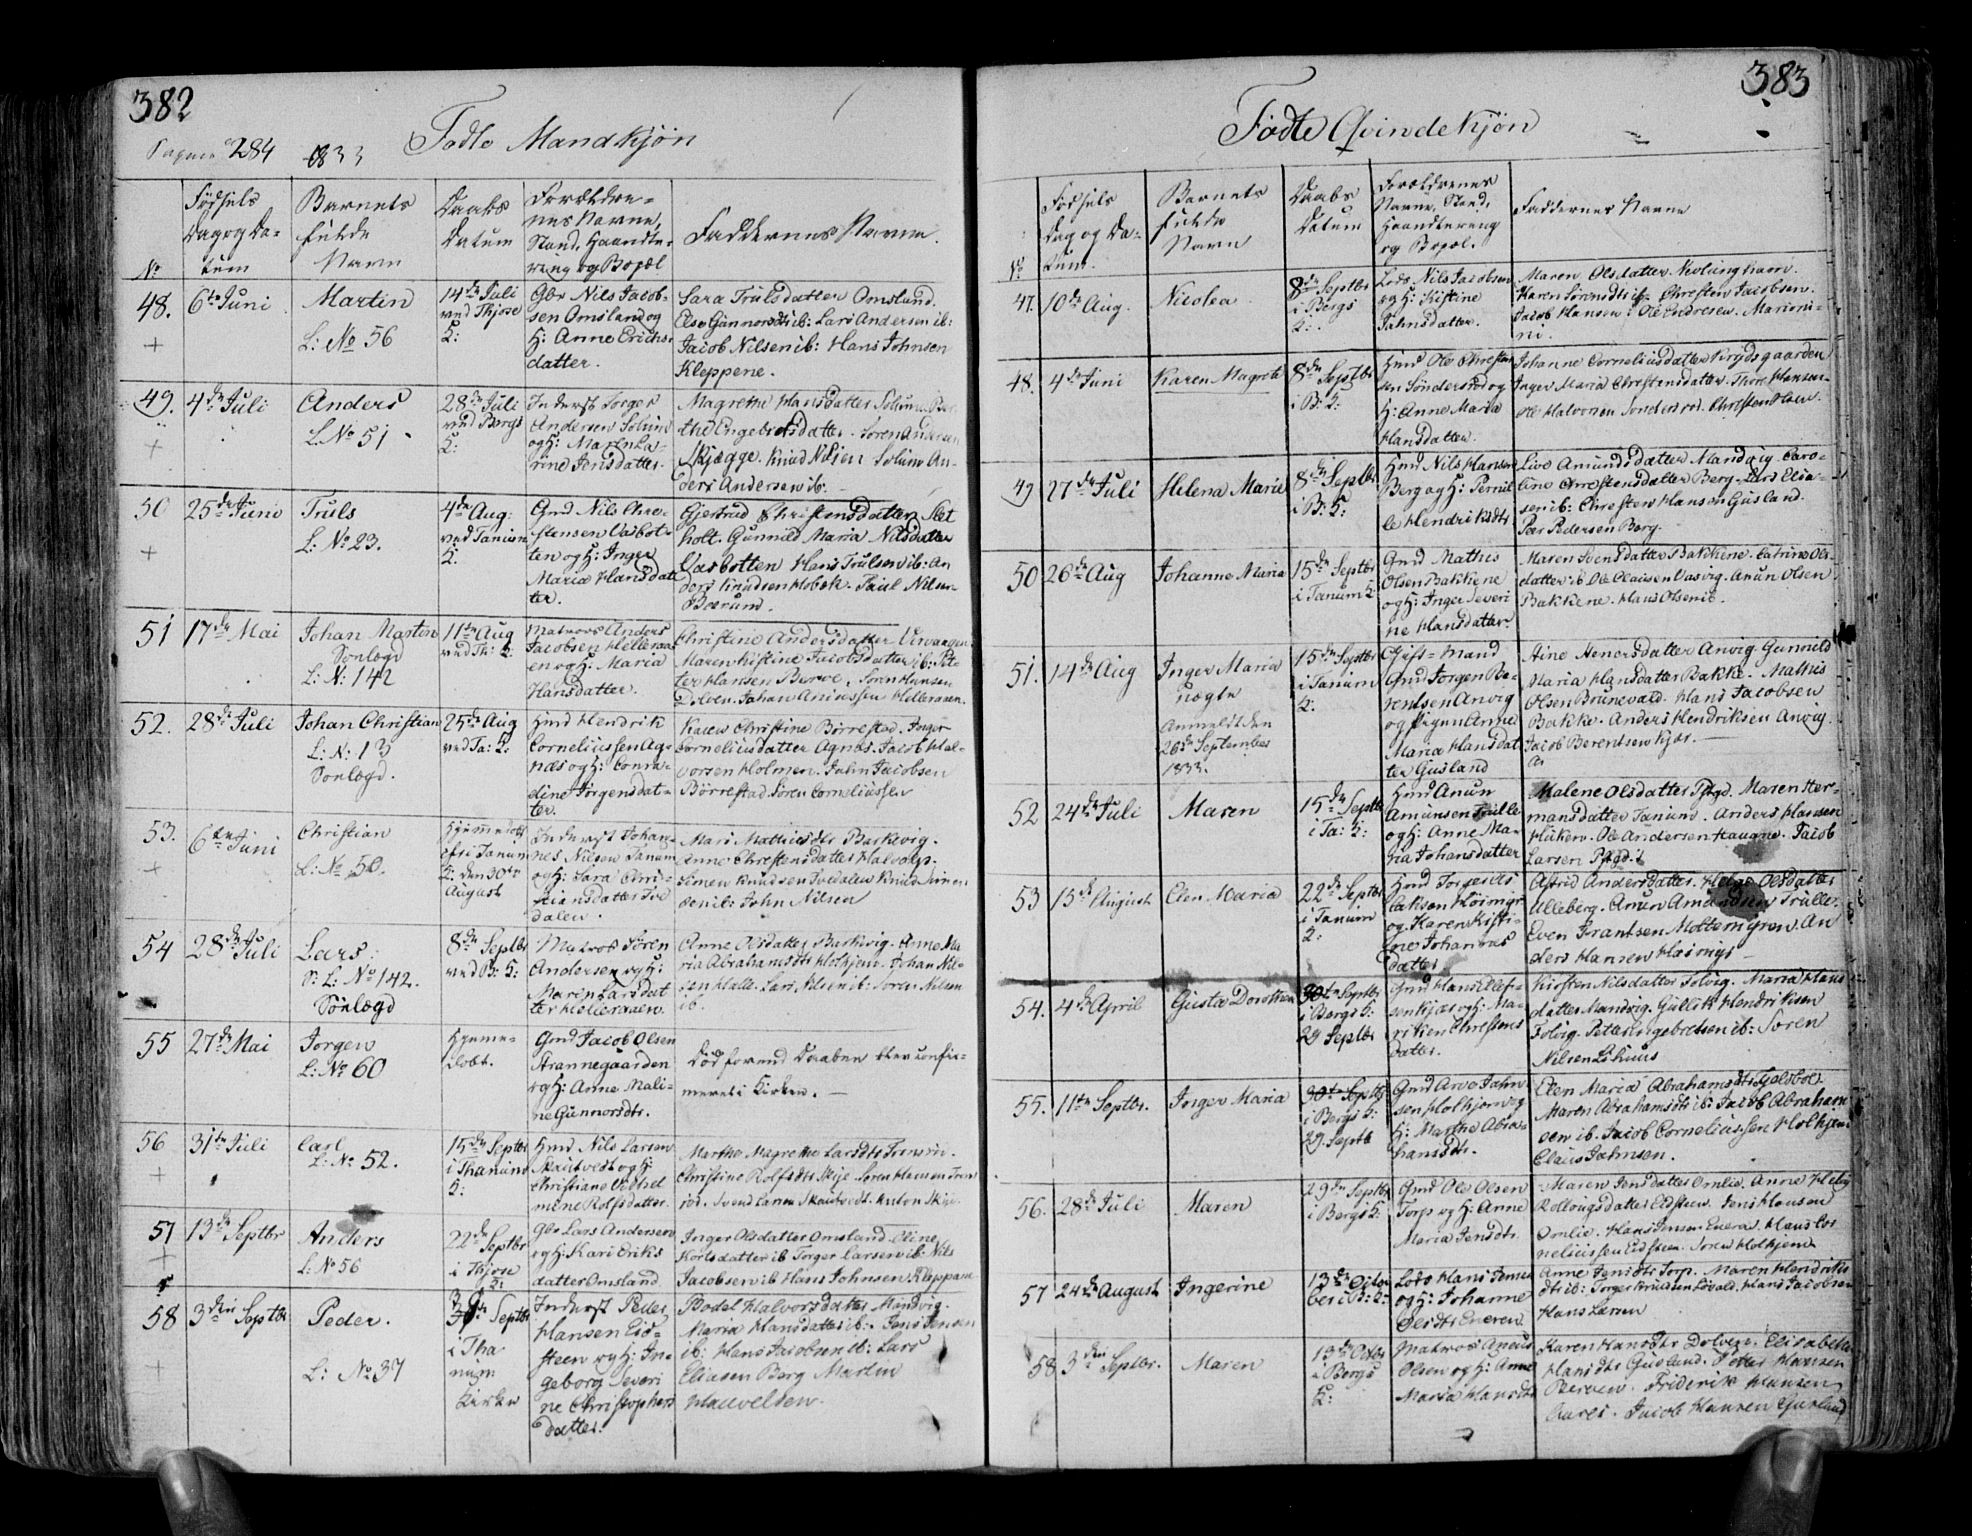 382
284 1833
Fødte Mandkjøn
No
Fødsels
Dag og Da-
tum
Barnets
fulde
Navn
Daabs
Datum
Forældre-
nes Navne,
Stand, Haandte-
ring og Bopæl
Faddernes Navne.
48. 6te Juni
Martin
L: No 56
14de Juli
ved Thjøse
K:
Gbr Nils Jacob-
sen Omsland og
H: Anne Erichs-
datter.
Sara Trulsdatter Omsland.
Else Gunnorsdtr ib: Lars Andersen ib:
Jacob Nilsen ib: Hans Johnsen
Kleppene.
49. 4de Juli
Anders
L. No 51
28de Juli
ved Bergs
K:
Inderst Torger
Andersen Solum
og H: Maren Ca-
rine Jensdatter.
Magrethe Hansdatter Solum. Ber-
the Engebretsdatter. Søren Andersen
Skjægge. Knud Nilsen Solum An-
ders Andersen ib.
50 25de Juni
Truls
L: No 23.
4de Aug:
ved Tanum
K:
Gmd Nils Chre-
stensen Vasbot-
ten og H: Inger
Maria Hansdat-
ter.
Gjertrud Christensdatter Slet
holt. Gunnild Maria Nilsdatter
Vasbotten Hans Trulsen ib: An
ders Knudsen Hobek. Paul Nilsen
Bærund.
51 17de Mai
Johan Martin
Sønlægd
L: N: 142
11te Aug
ved Th: K:
Matros Anders
Jacobsen Helleraa-
en og H: Maria
Hansdatter.
Christine Andersdatter
Maren Kistine Jacobsdatter ib: Pet-
ter Hansen Burve. Søren Hansen
Dolven. Johan Helleraaen.
52. 28de Juli
Johan Christian
L: N: 13
Sønlægd.
25de Aug
ved Ta: K:
Hmd Hendrik
Corneliussen Ag-
næs og H: Conra-
dine Jørgensdat-
ter.
Karen Christine Børrestad. Inger
Corneliusdatter Agnæs. Jacob Hal-
vorsen Holmen. John Jacobsen
Børrestad. Søren Corneliussen
53. 6te Juni
Christian
L: No 50.
Hjemedøbt
Tanum
K: den 30te
August
Inderst Johan-
nes Nilsen Tanum
og H: Sara Chri-
stiansdatter Tve
dalen.
Mari Mathiesdtr Barkevig.
Anne Chrestensdatter
Simen Knudsen Tvedalen Knud Simen
sen ib: John Nilsen
54 28de Juli
Lars
S: L: No 142.
Sønlægd
8de Septbr
ved B: K:
Matros Søren
Andersen og H:
Maren Larsdat
ter Helleraaen.
Anne Olsdatter Barkevig. Anne Ma-
ria Abrahamsdtr Holhjem. Johan Nil-
sen Halle. Lars Nilsen ib: Søren Nilsen
ib.
55 27de Mai
Jørgen
L: No 60
Hjeme-
døbt.
Gmd Jacob Olsen
Strannegaarden
og H: Anne Mali-
ne Gunnorsdtr.
Død forend Daaben blev confir-
meret i Kirken.
56 31te Juli
Carl
L: No 52.
15de Septbr
i Thanum
K:
Hmd Nils Larsen
Skautvedt og H:
Christiane Vilhel
mine Rolfsdatter.
Marthe Magrethe Larsdtr
Christine Rolfsdtr Skije. Søren Hansen
Svend Larsen Skautvedt. Anton Skije.
57 13de Septbr
Anders
L: No 56
22de Septbr
i Thjøse
K:
Gbr Lars Andersen
og H: Kari Eriks
datter Omsland
Inger Olsdatter Omsland. Eline
datter ib Torger Larsen ib. Nils
Jacobsen ib Hans Johnsen Kleppane
58 3die Septbr
Peder.
L: No 37
Septbr
i Tha
num
Kirke
Inderst Peder
Hansen Eid-
steen og H: In-
geborg Severi
ne Christophers
datter.
Bodel Halvorsdatter Mandvig.
Maria Hansdatter ib. Jens Jensen
ib: Hans Jacobsen ib: Lars
Eliasen Berg Martin
383
Fødte Qvindekjøn
No
Fødsels
Dag og Da-
tum.
Barnets
fulde
Navn
Daabs
Datum
Forældrenes
Navne, Stand,
Haandtering
og Bopæl.
Faddernes Navne
47. 10de Aug.
Nicolea
8de Septbr
i Bergs
K:
Lods Nils Jacobsen
og H: Kistine
Johnsdatter.
Maren Olsdatter Nevlunghavn.
Karen Sørensdtr ib. Christen Jacobsen.
Jacob Hansen. Ole Endresen.
48. 4de Juni
Karen Magrete
8de Septbr
i B: K:
Hmd Ole Christen
sen Sønderød og
H: Anne Maria
Hansdatter.
Johanne Corneliusdatter Krydsgaarden
Inger Maria Christensdatter. Thor Hansen.
Ole Halvorsen Sønderød. Christen Olsen.
49 27de Juli
Helena Maria
8de Septbr
i B: K:
Hmd Nils Hansen
Berg og H: Pernil
le Hendriksdtr
Live Amundsdatter Mandvig. Caro-
line Chrestensdatter Berg. Lars Elia-
sen ib: Chresten Hansen Gusland.
Peer Pedersen Berg.
50 26de Aug
Johanne Maria
15de Septbr
i Tanum K:
Gmd Mathis
Olsen Bakkene
og H: Inger Severi
ne Hansdatter
Maren Svensdatter Bakkene. Catrine Ols-
datter ib. Ole Clausen Vasvig. Anun Olsen
Bakkene. Hans Olsen ib.
51. 14de Aug
Inger Maria
uægte
Anmeldt den
26de September
1833.
15de Septbr
i Tanum
K:
Gift-Mand
Gmd Jørgen Be-
rentsen Anvig
og Pigen Anne
Maria Hansdat
ter Gusland
datter Anvig. Gunnild
Maria Hansdatter Bakke. Mathis
Olsen Brunevald. Hans Jacobsen
Bakke. Anders Hendriksen Anvig.
Jacob Berentsen Kjær.
52 24de Juli
Maren
15de Septbr
i Ta: K:
Hmd Anun
Amunsen Trulle
og H: Anne Ma-
ria Johansdatter
Malene Olsdatter Pgd. Maren Her-
mansdatter Tanum. Anders Hansen
Ole Andersen Haugne. Jacob
Larsen Pgd.
53 15de August
Elen Maria
22de Septbr
i Tanum
K:
Hmd Torger
og Karen Kisti-
ne Johannes
datter
Astrid Andersdatter. Helge Olsdatter
Ulleberg. Anun Amundsen Trulle.
Even Frantsen Moltemyren. An
ders Hansen
54. 4de April
Gusta Dorothea
30te Septbr
i Bergs K:
29 Septbr
Gmd Hans Ellef-
sen Kjær og H: Ma-
riken Chrestens
datter.
Kirsten Nilsdatter Foldvig. Maria Hans
datter Mandvig Gullik Hendriksen
Foldvig. Peter Ingebretsen ib: Søren
Nilsen
55. 11te Septbr.
Inger Maria
30te Septbr
i Bergs K:
29 Septb
Gmd Arve John
sen Holhjem og
H: Marthe Abra-
hamsdtr.
Elen Maria Abrahamsdtr
Maren Abrahamsdtr ib: Jacob Abraham
sen ib. Jacob Corneliussen Holhjem
Claus Johnsen.
56. 28de Juli
Maren
29de Septbr
i Bergs K:
Gmd Ole Olsen
Torp og H: Anne
Maria Jensdtr.
Maren Jensdatter Omlie. Anne
datter Eidsten. Jens Hansen
Omlie. Hans Jensen Hans Cor
neliussen Eidsteen. Søren Holhjem
57 24de August
Ingerine
13de Octo
ber i B: K:
Lods Hans Jensen
og H: Johanne
Olsdtr Eneren.
Anne Jensdtr Torp. Maren Hendriks
dtr ib: Torger Knudsen Hans Jacobsen
Hans Larsen
58 3die Septbr.
Maren
13de Octbr
i Bergs
K:
Matros
Olsen og H: Anne
Maria Hansdtr
Karen Hansdtr Dolven. Elisabeth
Hansdtr Gusland. Petter Hansen
Friderik Hansen
Aarøs. Jacob Hansen Gusland